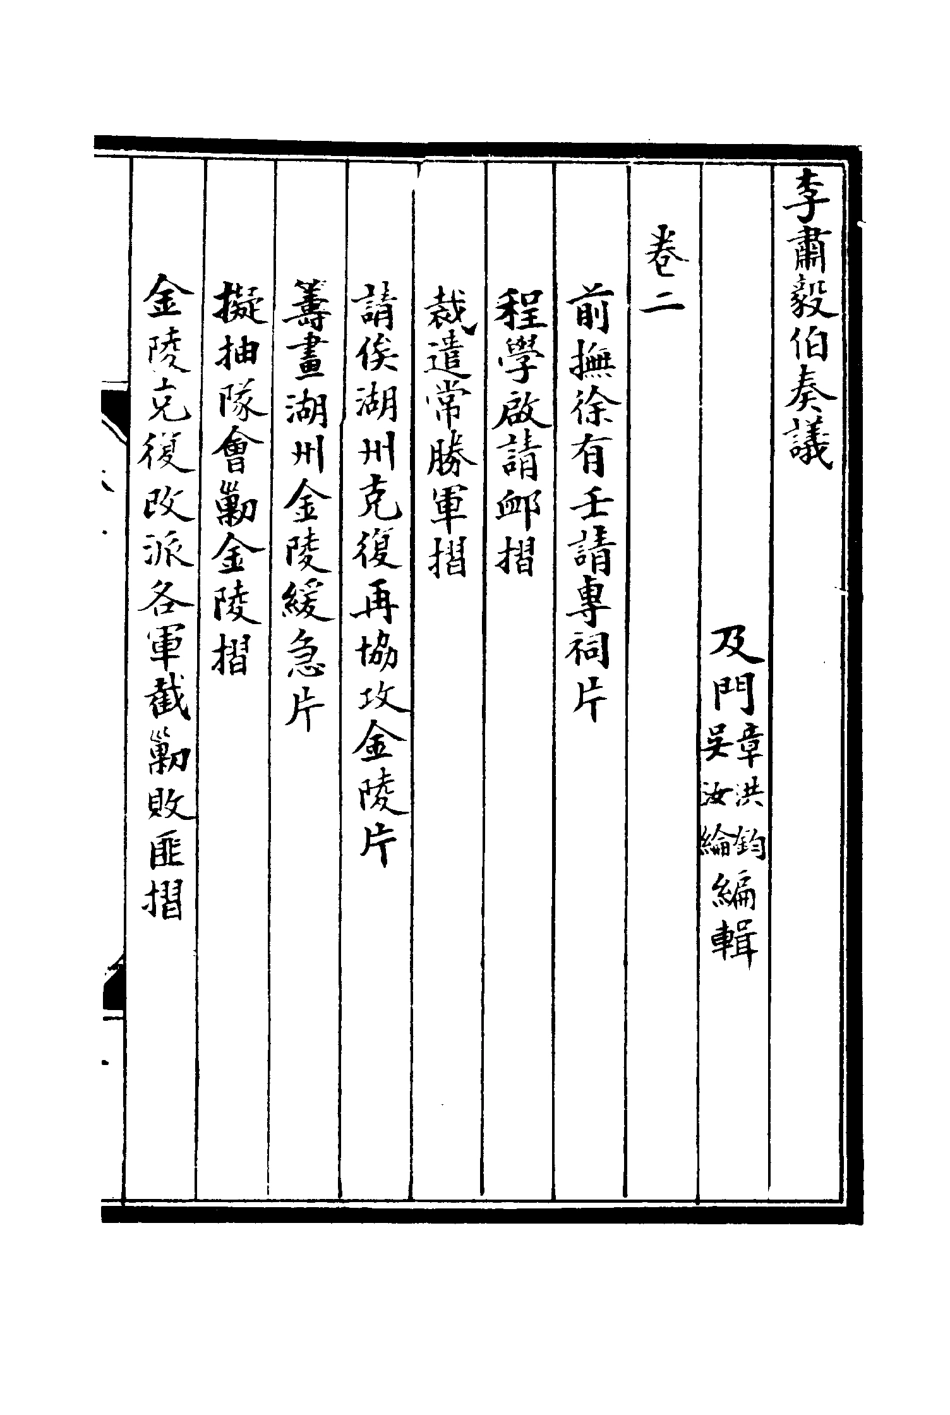 李肅毅伯奏議
及門章洪鈞吳汝綸編輯
卷二
前撫徐有壬請專祠片
程學啟請卹摺
裁遣常勝軍摺
請俟湖州克復再協攻金陵片
籌畫湖州金陵緩急片
擬抽隊會勦金陵摺
金陵克復改派各軍截勦敗匪摺